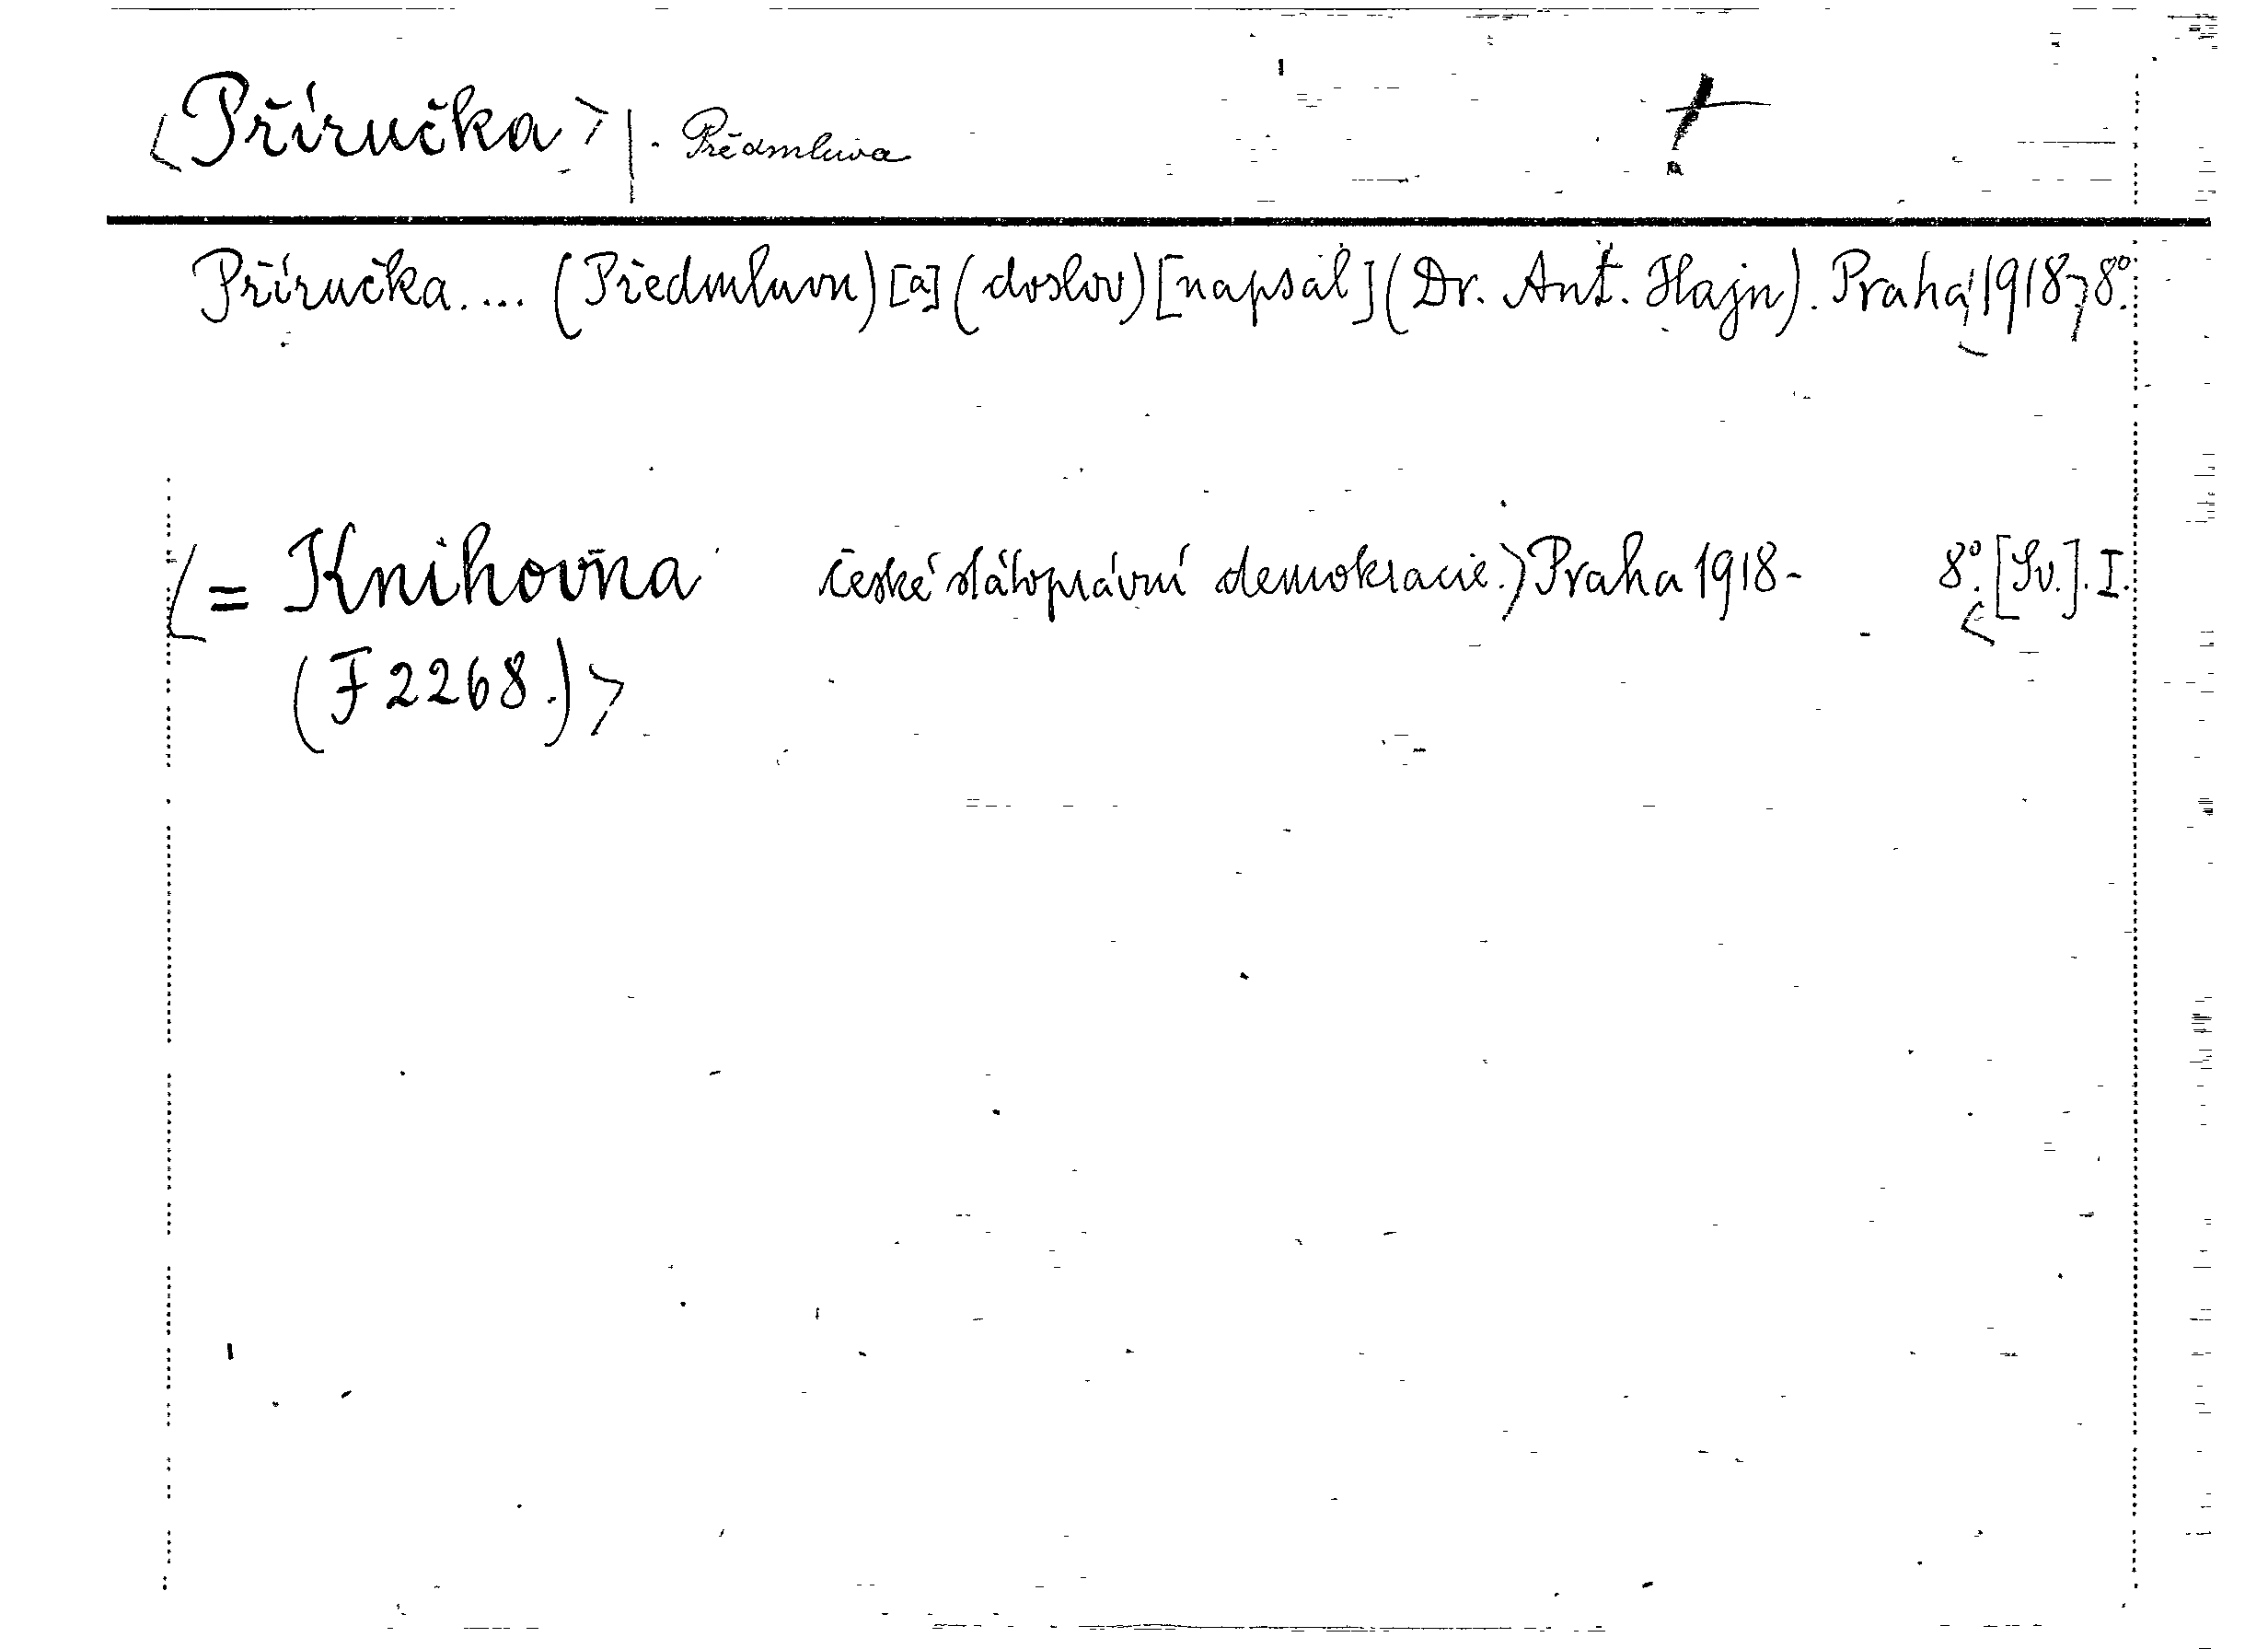 <Příručka>|. Předmluva
Příručka.... (Předmluvu)[a](doslov)[napsal](Dr. Ant. Hajn). Praha, 1918, 8°.
<= Knihovna české státoprávní demokracie.) Praha 1918- 8°.<[Sv.]. I.
(F 2268.)>